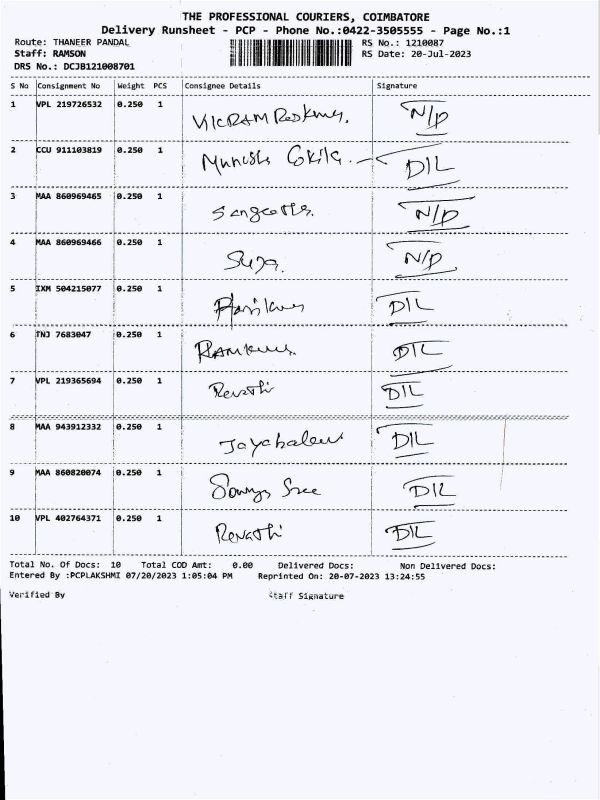 THE PROFESSIONAL COURIERS, COIMBATORE
Delivery Runsheet - PCP - Phone No.:0422-3505555 - Page No.:1
Route: THANEER PANDAL RS No.: 1210087
Staff: RAMSON RS Date: 20-Jul-2023
DRS No.: DCJB121008701
S No Consignment No Weight PCS Consignee Details Signature
1 VPL 219726532 0.250 1 VICKRAM N/D
2 CCU 911103819 0.250 1 D/L
3 MAA 860969465 0.250 1 Sangeetha. N/D
4 MAA 860969466 0.250 1 Suja. N/D
5 IXM 504215077 0.250 1 D/L
6 TNJ 7683047 0.250 1 D/L
7 VPL 219365694 0.250 1 Revathi D/L
8 MAA 943912332 0.250 1 D/L
9 MAA 860820074 0.250 1 Sowmya Sree D/L
10 VPL 402764371 0.250 1 Revathi D/L
Total No. Of Docs: 10 Total COD Amt: 0.00 Delivered Docs: Non Delivered Docs:
Entered By :PCPLAKSHMI 07/20/2023 1:05:04 PM Reprinted On: 20-07-2023 13:24:55
Verified By Staff Signature